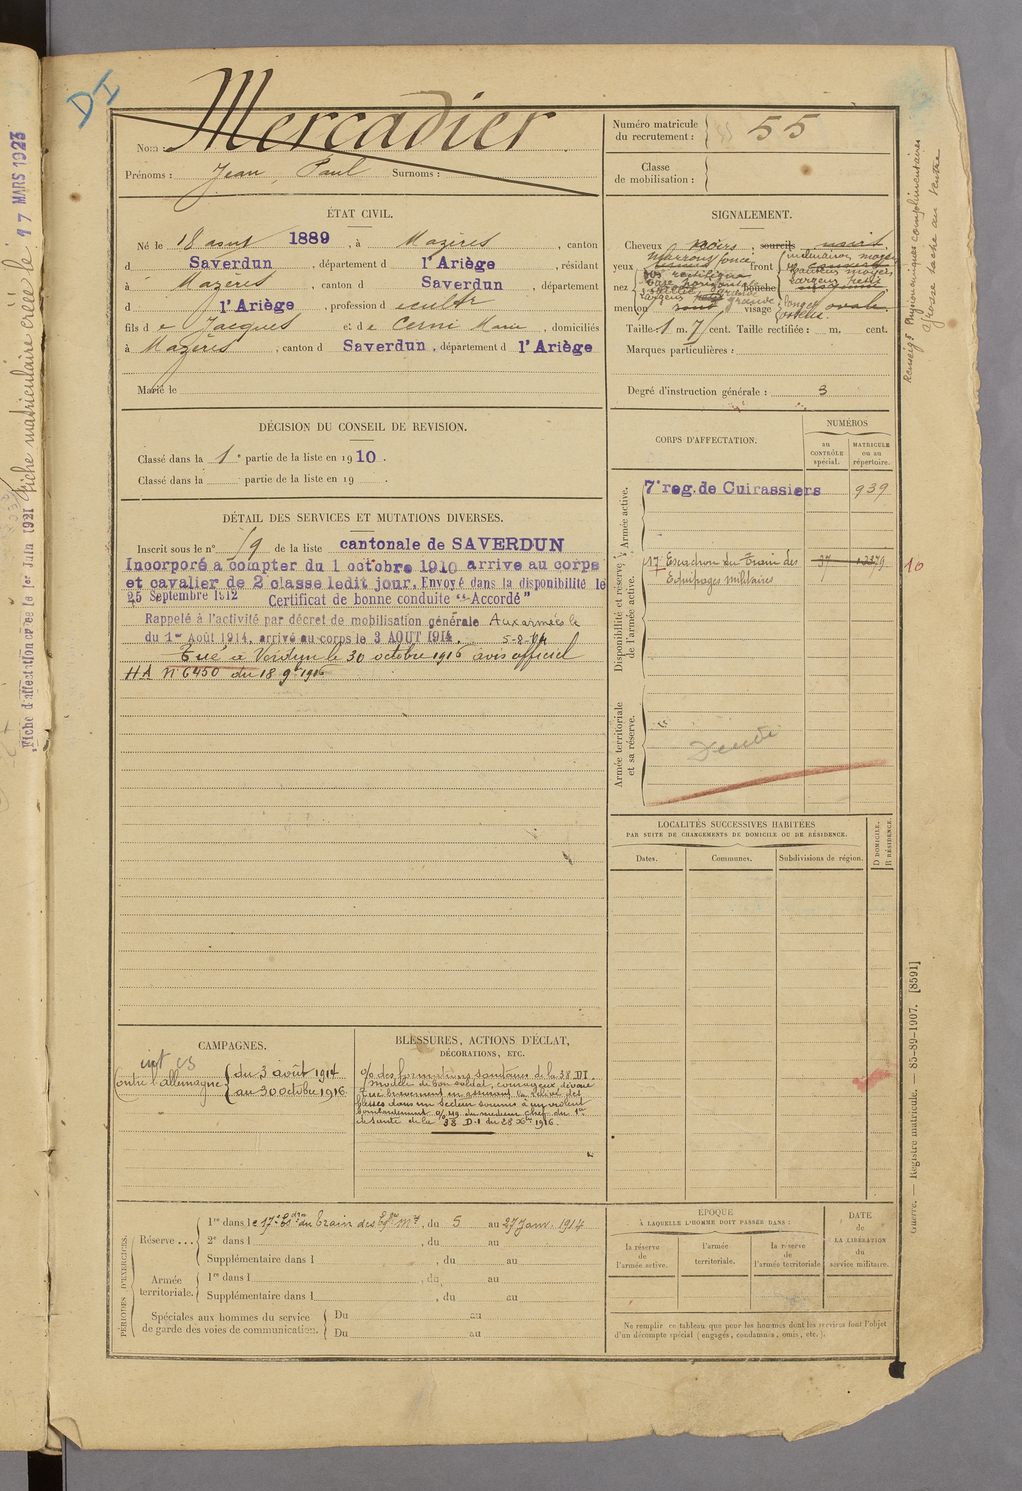 DI
Fiche matriculaire créée le 17 MARS 1923
Fiche d'affectation créée le 1er Juin 1921
Nom : Mercadier
Prénoms : Jean, Paul Surnoms :
Numéro matricule du recrutement : 55
Classe de mobilisation :
ÉTAT CIVIL.
Né le 18 août 1889, à Mazères, canton
d Saverdun, département d l'Ariège, résidant
à Mazères, canton d Saverdun, département
d l'Ariège, profession de cult
fils de Jacques et de Cerni Marie, domiciliés
à Mazères, canton d Saverdun, département d l'Ariège
Marié le
SIGNALEMENT.
Cheveux noirs, sourcils noirs
yeux marrons foncé front inclinaison moyenne
hauteur moyenne
largeur petite
nez dos rectiligne
base horizontale
bouche
menton rond visage ovale
Taille : 1 m. 71 cent. Taille rectifiée : m. cent.
Marques particulières :
Degré d'instruction générale : 3
Renseigts Physionomiques complémentaires
grosse tache au ventre
DÉCISION DU CONSEIL DE REVISION.
Classé dans la 1e partie de la liste en 1910.
Classé dans la partie de la liste en 19 .
DÉTAIL DES SERVICES ET MUTATIONS DIVERSES.
Inscrit sous le n° 19 de la liste cantonale de SAVERDUN
Incorporé à compter du 1 octobre 1910 arrivé au corps
et cavalier de 2 classe ledit jour. Envoyé dans la disponibilité le
25 Septembre 1912 Certificat de bonne conduite "Accordé"
Rappelé à l'activité par décret de mobilisation générale Aux armées le
du 1er Août 1914, arrivé au corps le 3 AOUT 1914. 5-8-14
Tué à Verdun le 30 octobre 1916 avis officiel
HA N° 6450 du 18 9bre 1916
CORPS D'AFFECTATION.
NUMÉROS
au CONTRÔLE spécial.
MATRICULE ou au répertoire.
Armée active.
7e reg. de Cuirassiers 939
Disponibilité et réserve de l'armée active.
17e Escadron du Train des 37 1237 10
Equipages militaires
Armée territoriale et sa réserve.
LOCALITÉS SUCCESSIVES HABITÉES
PAR SUITE DE CHANGEMENTS DE DOMICILE OU DE RÉSIDENCE.
Dates.
Communes.
Subdivisions de région.
D DOMICILE.
R RÉSIDENCE.
CAMPAGNES.
int CS
Contre l'allemagne
du 3 août 1914
au 30 octobre 1916
BLESSURES, ACTIONS D'ÉCLAT,
DÉCORATIONS, ETC.
o/o des formations sanitaires de la 38 DI.
Modèle de bon soldat, courageux, dévoué
tué bravement en assurant la relève des
blessés dans un secteur soumis à un violent
bombardement o/o 49 du médecin chef du Ser
de santé de la 38 D.I du 28 Xbre 1916.
PÉRIODES D'EXERCICES.
Réserve ...
1re dans le 17e Edron du train des Eqges Mres, du 5 au 27 Janv. 1914
2e dans l , du au
Supplémentaire dans l , du au
Armée territoriale.
1re dans l , du au
Supplémentaire dans l , du au
Spéciales aux hommes du service de garde des voies de communication.
Du au
Du au
EPOQUE
À LAQUELLE L'HOMME DOIT PASSER DANS :
la réserve de l'armée active.
l'armée territoriale.
la réserve de l'armée territoriale
DATE de LA LIBÉRATION du service militaire.
Ne remplir ce tableau que pour les hommes dont les services font l'objet
d'un décompte spécial (engagés, condamnés, omis, etc.).
Guerre. — Registre matricule. — 85-89-1907. [8591]